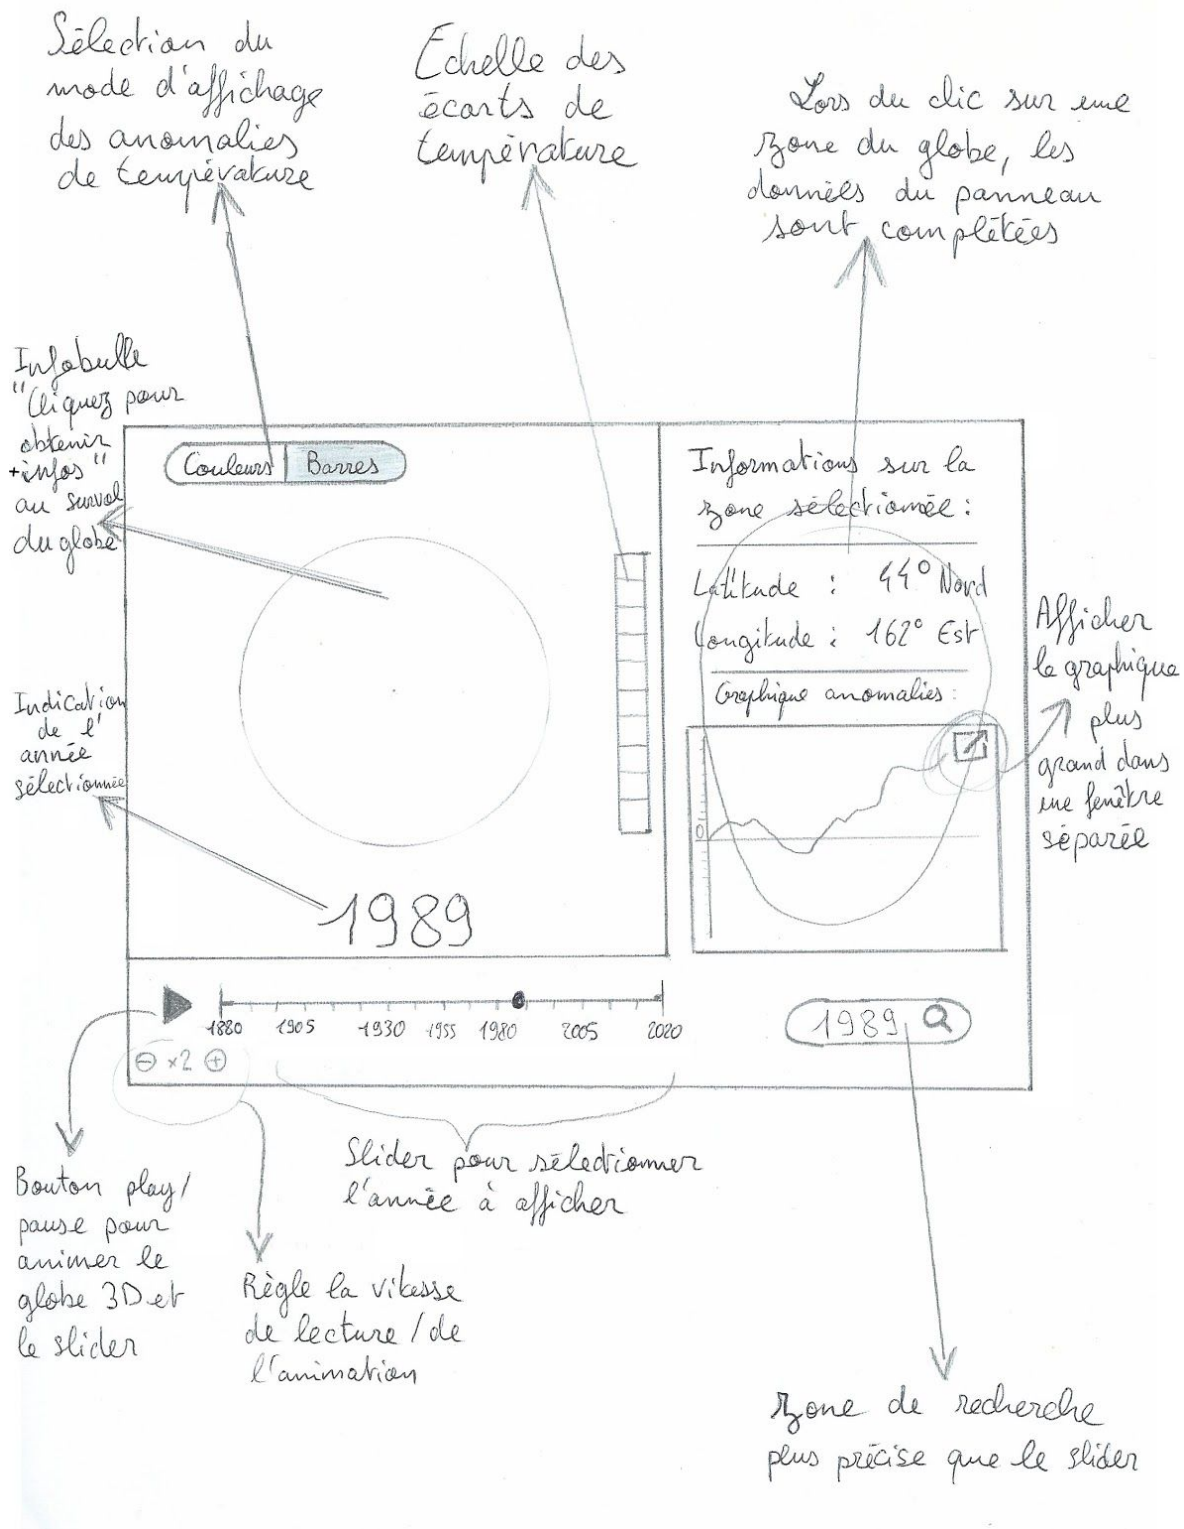 Sélection du
mode d'affichage
des anomalies
de température
Echelle des
écarts de
température
Lors du clic sur une
zone du globe, les
données du panneau
sont complétées
Infobulle
"Cliquez pour
obtenir
+ infos"
au survol
du globe
Indication
de l'
année
sélectionnée
Couleurs Barres
1989
Informations sur la
zone sélectionnée :
Latitude : 44° Nord
Longitude : 162° Est
Graphique anomalies :
0
Afficher
le graphique
plus
grand dans
une fenêtre
séparée
1880 1905 1930 1955 1980 2005 2020
x2
1989
Bouton play/
pause pour
animer le
globe 3D et
le slider
Règle la vitesse
de lecture / de
l'animation
Slider pour sélectionner
l'année à afficher
zone de recherche
plus précise que le slider